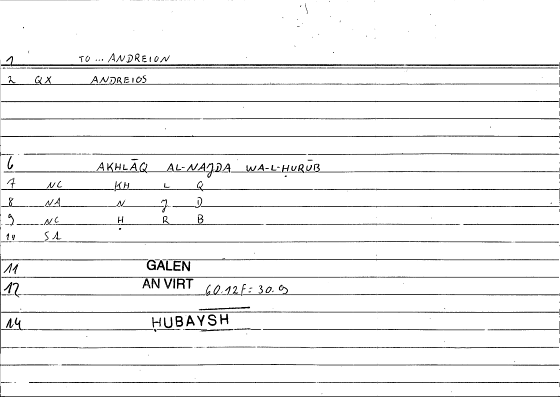 1 TO ... ANDREION
2 QX ANDREIOS
6 AKHLĀQ AL-NAJDA WA-L-ḤURŪB
7 NC KH L Q
8 NA N J D
9 NC Ḥ R B
10 SA
11 GALEN
12 AN VIRT 60.12F = 30.9
14 ḤUBAYSH